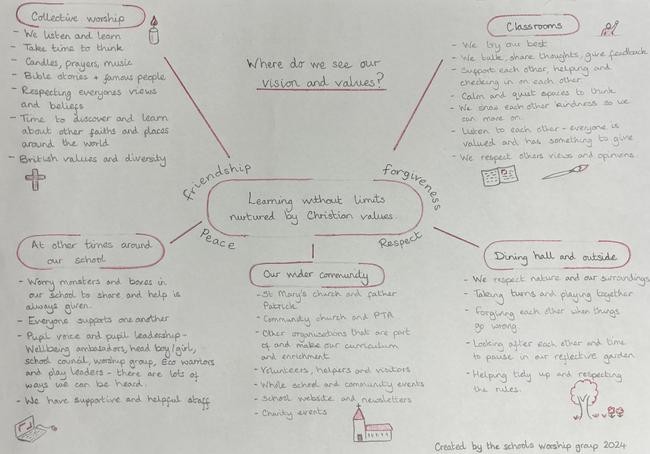 Collective worship
- We listen and learn
- Take time to think
- Candles, prayers, music
- Bible stories + famous people
- Respecting everyones views
and beliefs
- Time to discover and learn
about other faiths and places
around the world
- British values and diversity
Where do we see our
vision and values?
Classrooms
- We try our best
- We talk, share thoughts, give feedback
- Support each other, helping and
checking in on each other.
- Calm and quiet spaces to think
- We show each other kindness so we
can move on.
- Listen to each other - everyone is
valued and has something to give
- We respect others views and opinions.
friendship
forgiveness
Learning without limits
nurtured by Christian values.
Peace
Respect
At other times around
our school
- Worry monsters and boxes in
our school to share and help is
always given.
- Everyone supports one another
- Pupil voice and pupil leadership -
Wellbeing ambassadors, head boy/girl,
school council, worship group, Eco warriors
and play leaders - there are lots of
ways we can be heard.
- We have supportive and helpful staff
Our wider community
- St Mary's church and father
Patrick
- Community church and PTA
- Other organisations that are part
of and make our curriculum
and enrichment
- Volunteers, helpers and visitors
- Whole school and community events
- School website and newsletters
- Charity events
Dining hall and outside
- We respect nature and our surroundings
- Taking turns and playing together
- Forgiving each other when things
go wrong.
- Looking after each other and time
to pause in our reflective garden
- Helping tidy up and respecting
the rules.
Created by the schools worship group 2024